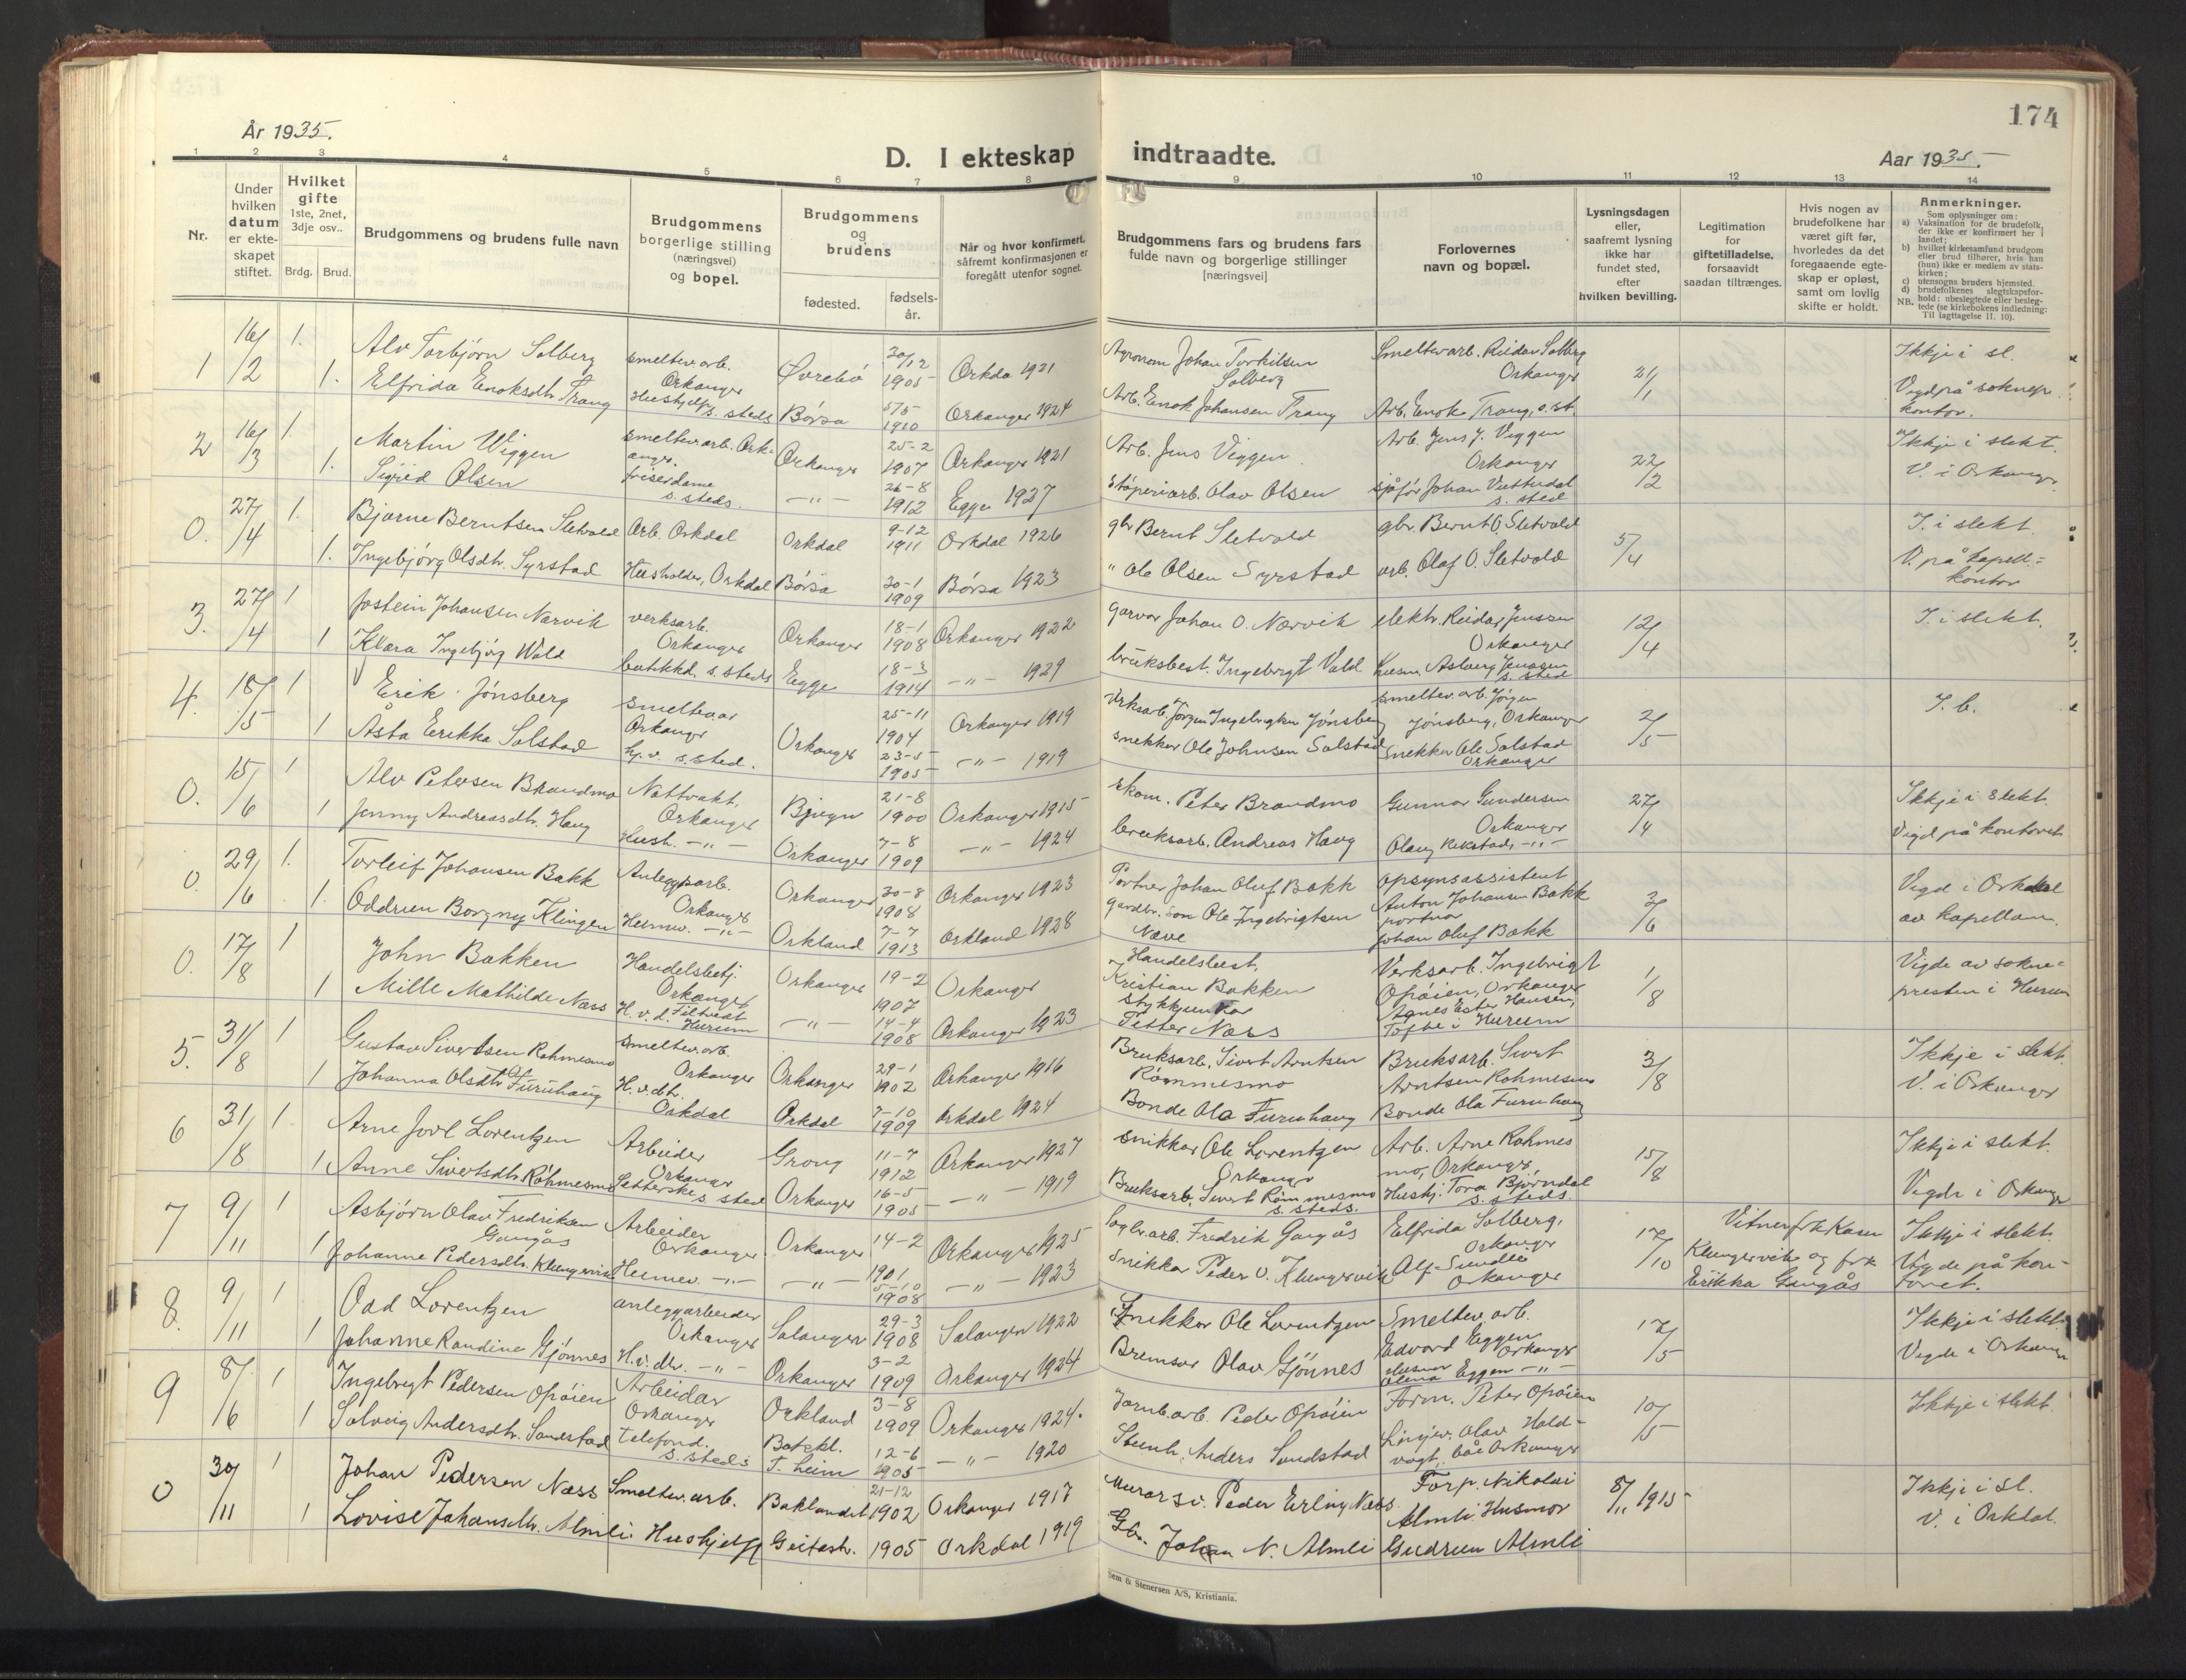 År 1935.
D. I ekteskap
1 2 3 4 5 6 7 8
Nr.
Under hvilken datum er ekte-skapet stiftet.
Hvilket gifte 1ste, 2net, 3dje osv..
Brdg. Brud.
Brudgommens og brudens fulle navn
Brudgommens borgerlige stilling (næringsvei) og bopel.
Brudgommens og brudens
fødested. fødsels-år.
Når og hvor konfirmert, såfremt konfirmasjonen er foregått utenfor sognet.
1 16/2 1. Alv Torbjørn Solberg smeltev.arb. Orkanger Øvrebø 30/12 1905 Orkda 1921
1. Elfrida Enoksdtr. Trang Hushjelp s. steds Børsa 5/5 1910 Orkanger 1924
2 16/3 1. Martin Wiggen smeltev.arb. Orkanger Orkanger 25-2 1907 Orkanger 1921
1. Sigrid Olsen friserdame s. steds. -"- 26-8 1912 Egge 1927
0. 27/4 1. Bjarne Berntsen Sletvold Arb. Orkdal Orkdal 9-12 1911 Orkdal 1926
1. Ingebjørg Olsdtr. Syrstad Husholder, Orkdal Børsa 30-1 1909 Børsa 1923
3. 27/4 1 Jostein Johansen Narvik verksarb. Orkanger Orkanger 18-1 1908 Orkanger 1922
1 Klara Ingebjørg Wold butikkd. s. steds Egge 18-3 1914 -"- 1929
4. 18/5 1 Erik Jønsberg Smeltvar Orkanger Orkanger 25-11 1904 Orkanger 1919
1 Åsta Erikka Solstad hj.v. s.sted. 23-5 1905 -"- 1919
0. 15/6 1 Alv Petersen Brandmo Nattvakt, Orkanger Bjugn 21-8 1900 Orkanger 1915
1 Jenny Andreasdtr. Haug Hush. -"- Orkanger 7-8 1909 -"- 1924
0. 29/6 1. Torleif Johansen Bakk Anleggsarb. Orkanger Orkanger 30-8 1908 Orkanger 1923
1. Oddrun Borgny Klingen Heimev. -"- Orkland 7-7 1913 Orkland 1928
0. 17/8 1 John Bakken Handelsbetj. Orkanger Orkanger 19-2 1907 Orkanger
1 Mille Mathilde Næss H.v.d. Filtvedt Hurum -"- 14-4 1908 Orkanger 1923
5. 31/8 1 Gustav Sivertsen Rohmesmo Smeltev.arb. Orkanger Orkanger 29-1 1902 Orkanger 1916
1 Johanna Olsdtr. Furuhaug H.v.dtr. Orkdal Orkdal 7-10 1909 Orkdal 1924
6 31/8 1. Arne Jovl Lorentzen Arbeider Orkanger Grong 11-7 1912 Orkanger 1927
1 Anne Sivertsdtr. Röhmesmo s. sted Orkanger 16-5 1905 -"- 1919
7 9/11 1 Asbjørn Olav Fredriksen Gangås Arbeider Orkanger Orkanger 14-2 1901 Orkanger 1925
1 Johanne Pedersdtr. Klungervik Heimev. -"- -"- 5-10 1908 -"- 1923
8. 9/11 1 Odd Lorentzen anleggsarbeider Orkanger Salangen 29-3 1908 Salangen 1922
1 Johanne Randine Gjønnes H.v.der. -"- Orkanger 3-2 1909 Orkanger 1924
9 8/6 1 Ingebrigt Pedersen Opøien Arbeidar Orkanger Orkland 3-8 1909 Orkanger 1924.
1 Solveig Andersdtr. Sandstad telefond. s. steds Bakkl. T. heim 12-6 1905 -"- 1920
0 30/11 1 Johan Pedersen Næss Smeltev.arb. Baklandet 21-12 1902 Orkanger 1917
1 Lovise Johansdtr. Almli Hushjelp Geitastr. 1905 Orkdal 1919
174
indtraadte.
Aar 1935.
9 10 11 12 13 14
Brudgommens fars og brudens fars fulde navn og borgerlige stillinger [næringsvei]
Forlovernes navn og bopæl.
Lysningsdagen eller, saafremt lysning ikke har fundet sted, efter hvilken bevilling.
Legitimation for giftetilladelse, forsaavidt saadan tiltrænges.
Hvis nogen av brudefolkene har været gift før, hvorledes da det foregaaende egte-skap er opløst, samt om lovlig skifte er holdt.
Anmerkninger.
Som oplysninger om:
a) Vaksination for de brudefolk, der ikke er konfirmert her i landet;
b) hvilket kirkesamfund brudgom eller brud tilhører, hvis han (hun) ikke er medlem av stats-kirken;
c) utensogns bruders hjemsted.
d) brudefolkenes slegtskapsfor-hold: ubeslegtede eller besleg-tede (se kirkebokens indledning: Til Iagttagelse II. 10).
NB.
Agronom Johan Torkilsen Solberg Smeltev.arb. Reidar Solberg Orkanger 21/1 Ikkje i sl.
Arb. Enok Johansen Trang Arb. Enok Trang, s. st. Vigd på soknepr. kontor.
Arb. Jens Viggen Arb. Jens J. Viggen Orkanger 22/2 Ikkje i slekt.
Støperiarb. Olav Olsen sjåfør Johan s. sted V. i Orkanger
gbr Bernt Sletvold gbr. Bernt O. Sletvold 5/4 I. i slekt.
" Ole Olsen Syrstad arb. Olaf O. Sletvold V. på kapell.=kontor
garvar Johan O. Narvik elektr. Reidar Jenssen Orkanger 12/4 I. i slekt.
bruksbest. Ingebrigt Vold Husm. Aslaug Jenssen s. sted
Verksarb. Jørgen Ingebrigtsen Jønsberg smeltev.arb. Jørgen Jønsberg, Orkanger 2/5 I. b.
snekker Ole Johnsen Solstad Snekker Ole Solstad Orkanger
skom. Peter Brandmo Gunnar Gundersen Orkanger 27/4 Ikkje i slekt.
bruksarb. Andreas Haug Olaug Rekstad, -"- Vigd på kontoret
Portner Johan Oluf Bakk opsynsassistent Anton Johansen Bakk 3/6 Vigd i Orkdal
Gardbr. søn Ole Ingebrigtsen Næve portner Johan Oluf Bakk av kapellan.
Handelsbest. Kristian Bakken Verksarb. Ingebrigt Opøien, Orkanger 1/8 Vigde av sokne=
Stykkjunkar Petter Næss Agnes Ester Hansen, Tofte i Hurum presten i Hurum
Bruksarb. Sivert Arntsen Rømmesmo Bruksarb. Sivert Arntsen Rohmesmo 3/8 Ikkje i slekt.
Bonde Ola Furuhaug Bonde Ola Furuhaug V. i Orkanger
Snikkar Ole Lorentzen Orkanger Arb. Arne Rohmesmo, Orkanger, 15/8 Ikkje i slekt.
Bruksarb. Sivert Rømmesmo s. steds. Hushj. Tora Bjørndal s. steds. Vigde i Orkanger
Sagbr.arb. Fredrik Gangås Elfrida Solberg, Orkanger 17/10 Vitner frk Karen Ikkje i slekt.
Snikkar Peder O. Klungervik Alf Sundli Orkanger Klungervik og frk Erikka Gangås Vigde på kon-toret.
Snekker Ole Lorentzen Smeltev.arb. Edvard Eggen Orkanger 17/5 Ikkje i slekt.
Bremser Olav Gjønnes Husmor Olena Eggen -"- Vigde i Orkanger
Jernb.arb. Peder Opøien Form. Peter Opøien 10/5 Ikkje i slekt.
Steinh. Anders Sandstad Linjev. Olav Hold-vagt, båe Orkanger
Murarsv. Peder Erling Næss Forp. Nikolai Almli 8/11 1915 Ikkje i sl.
Gb. Johan N. Almli Husmor Gudrun Almli V. i Orkdal.
Sem & Stenersen A/S, Kristiania.